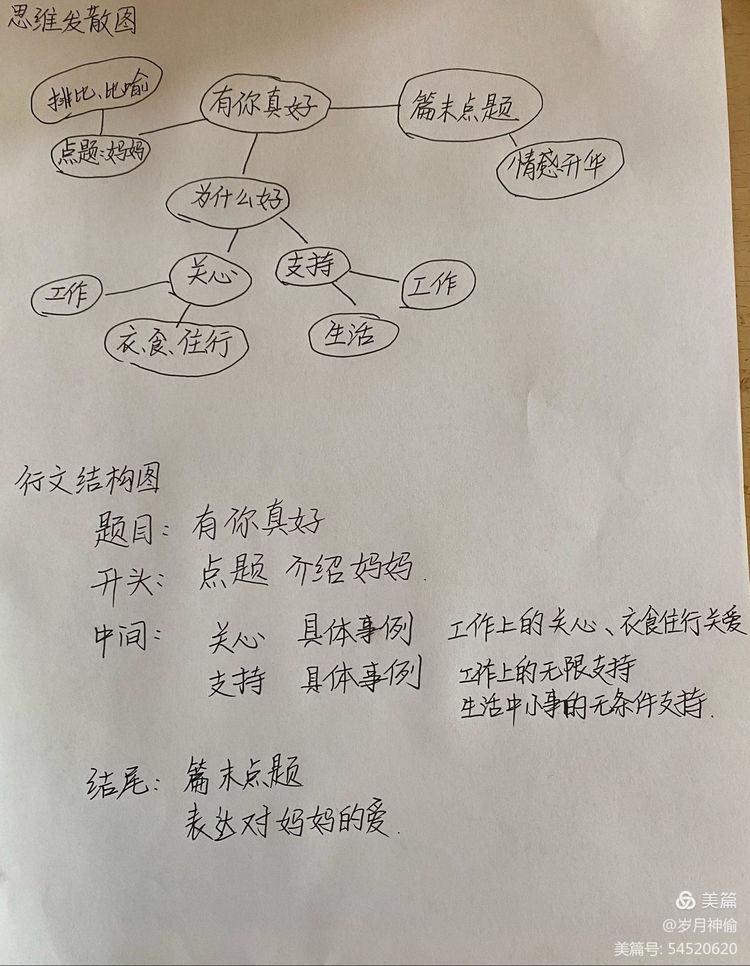 思维发散图
排比、比喻
有你真好
篇末点题
点题:妈妈
情感升华
为什么好
关心
支持
工作
工作
衣、食、住行
生活
行文结构图
题目: 有你真好
开头: 点题 介绍妈妈.
中间: 关心 具体事例 工作上的关心、衣食住行关爱
支持 具体事例 工作上的无限支持
生活中小事的无条件支持.
结尾: 篇末点题
表达对妈妈的爱.
美篇
@岁月神偷
美篇号: 54520620